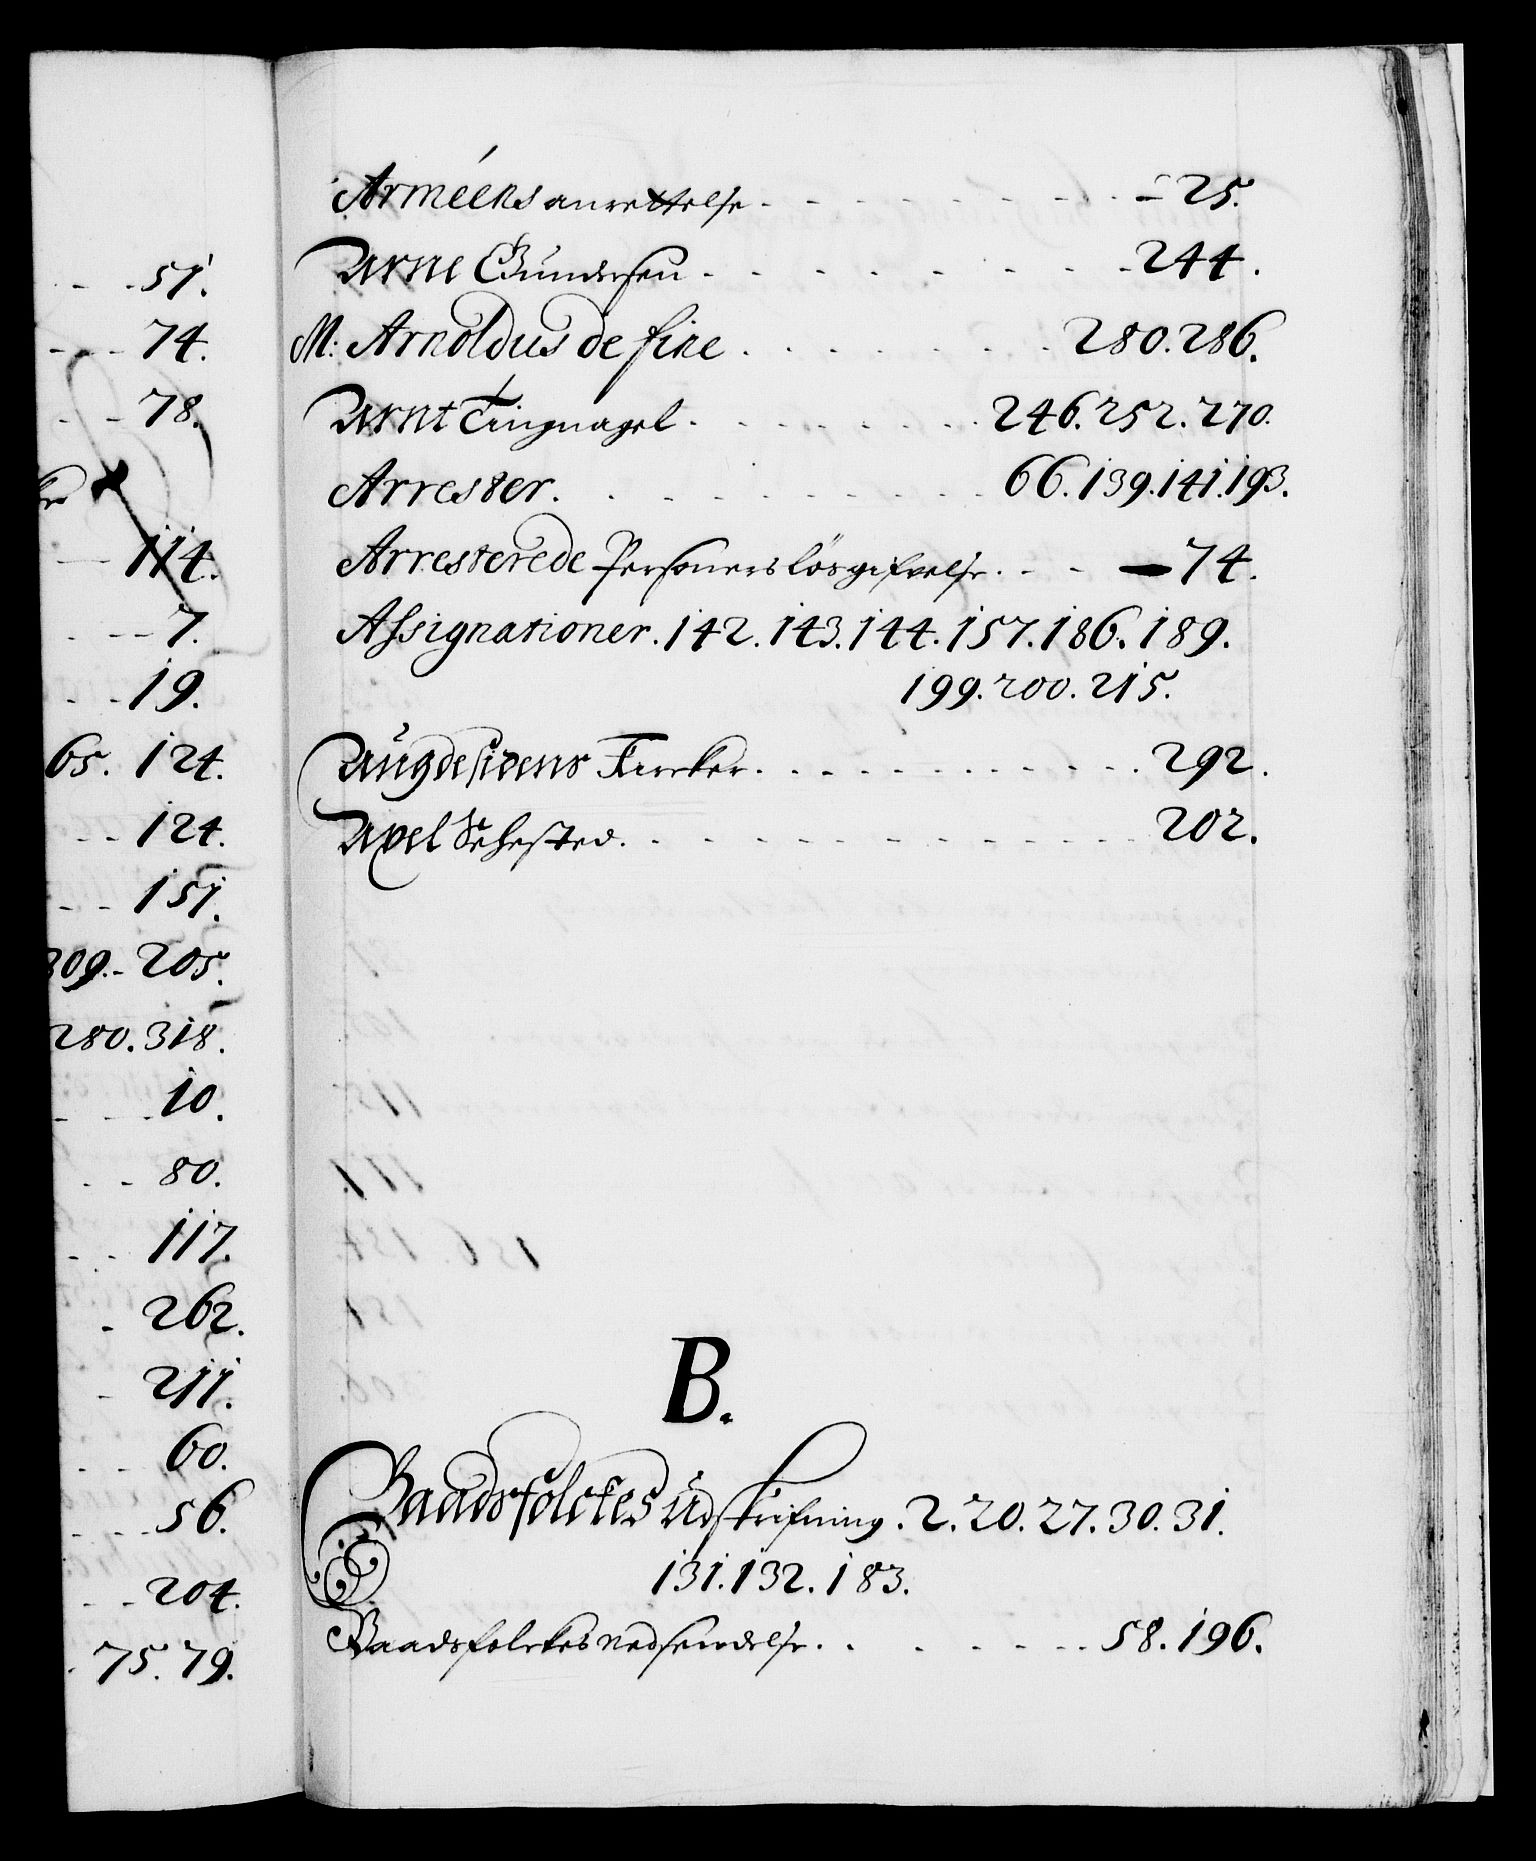 51.
74.
78.
114.
7.
19.
65. 124.
124.
151.
309. - 205.
280. 318.
10.
80.
117.
262.
211.
60.
56.
204.
75. 79.
Arméens anrettelse - - - 25.
Arne Gundersen - - - 244.
M: Arnoldus de fine . . . 280. 286.
Arnt Tingnagel - - - 246. 252. 270.
Arrester. - - - 66. 139. 141. 193.
Arresterede Personers lösgifvelse. - - - 74.
Assignationer. 142. 143. 144. 157. 186. 189.
199. 200. 215.
Augdesidens Kircker. . . . 292.
Axel Sehested. - - - 202.
B.
Baadsfolckes Udskrifning. 2. 20. 27. 30. 31.
131. 132. 183.
Baadsfolckes nedsendelse. - - - 58. 196.